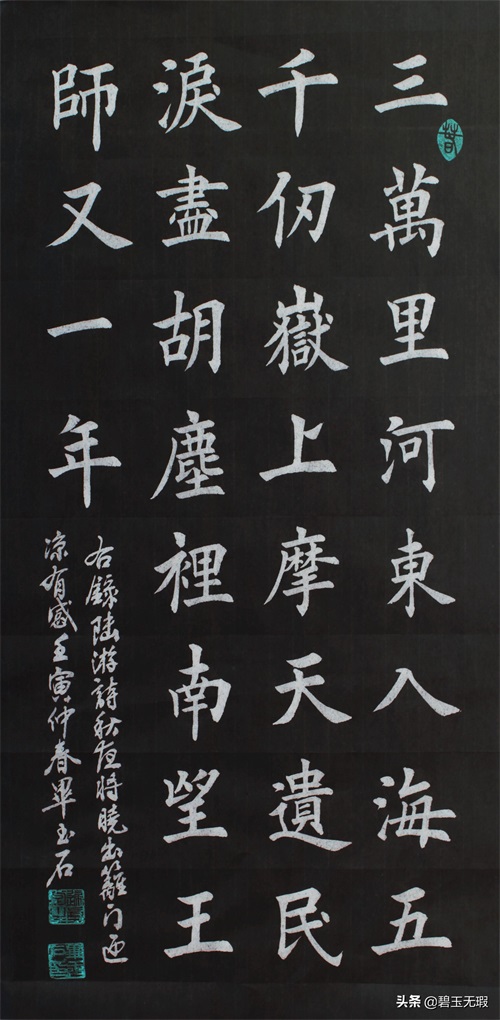 三萬里河東入海五
千仞嶽上摩天遺民
淚盡胡塵裡南望王
師又一年
右錄陆游詩秋夜將曉出籬门迎
涼有感壬寅仲春畢玉石
头条 @碧玉无瑕